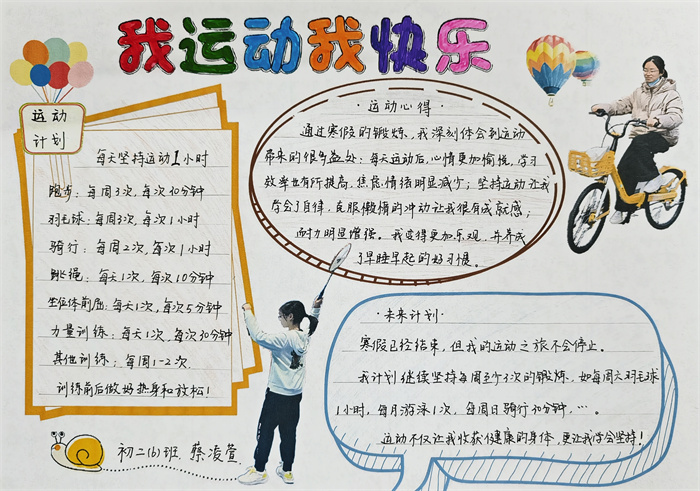 我运动我快乐
运动
计划
每天坚持运动1小时
跑步：每周3次，每次30分钟
羽毛球：每周3次，每次1小时
骑行：每周2次，每次1小时
跳绳：每天1次，每次10分钟
坐位体前屈：每天1次，每次5分钟
力量训练：每天1次，每次30分钟
其他训练：每周1-2次
训练前后做好热身和放松！
初二(6)班 蔡凌萱
·运动心得·
通过寒假的锻炼，我深刻体会到运动
带来的很多益处：每天运动后，心情更加愉悦，学习
效率也有所提高，焦虑情绪明显减少；坚持运动让我
学会了自律，克服懒惰的冲动让我很有成就感；
耐力明显增强。我变得更加乐观，并养成
了早睡早起的好习惯。
·未来计划·
寒假已经结束，但我的运动之旅不会停止。
我计划继续坚持每周至少3次的锻炼，如每周六羽毛球
1小时，每月游泳1次，每周日骑行30分钟，…。
运动不仅让我收获健康的身体，更让我学会坚持！